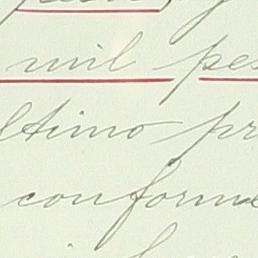 mil pes
ltimo pr
conforme